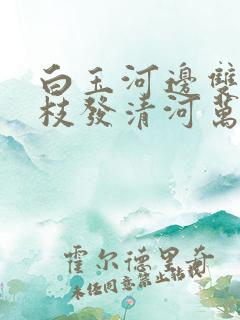 白玉河邊雙
枝發清河萬
霍尔德里奇
未经同意禁止转载